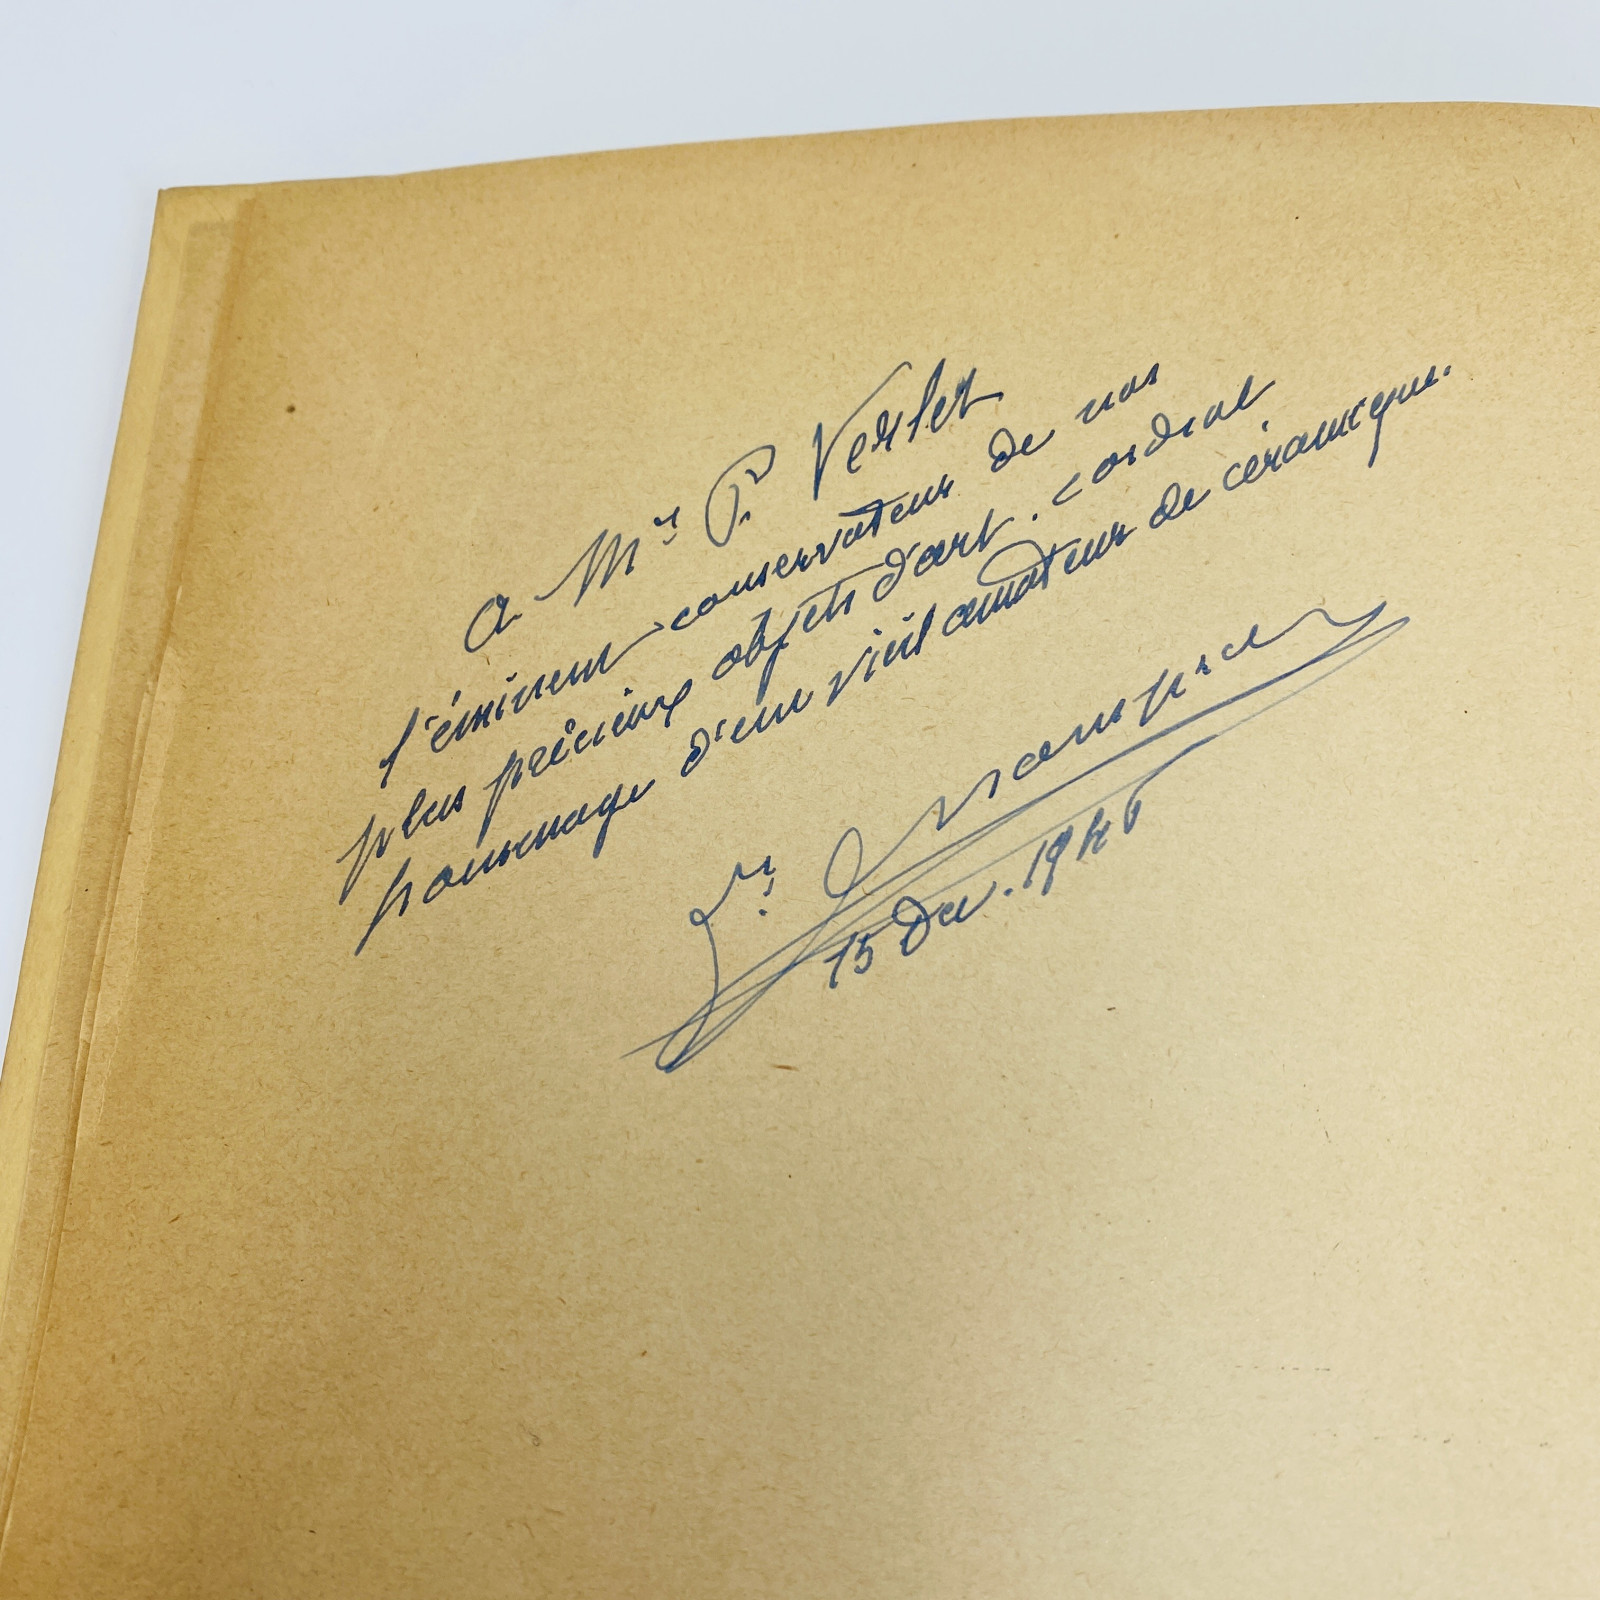 A Mr P. Verlet
l'éminent conservateur de nos
plus précieux objets d'art. cordial
hommage d'un vieil amateur de céramique.
15 Dec. 1946